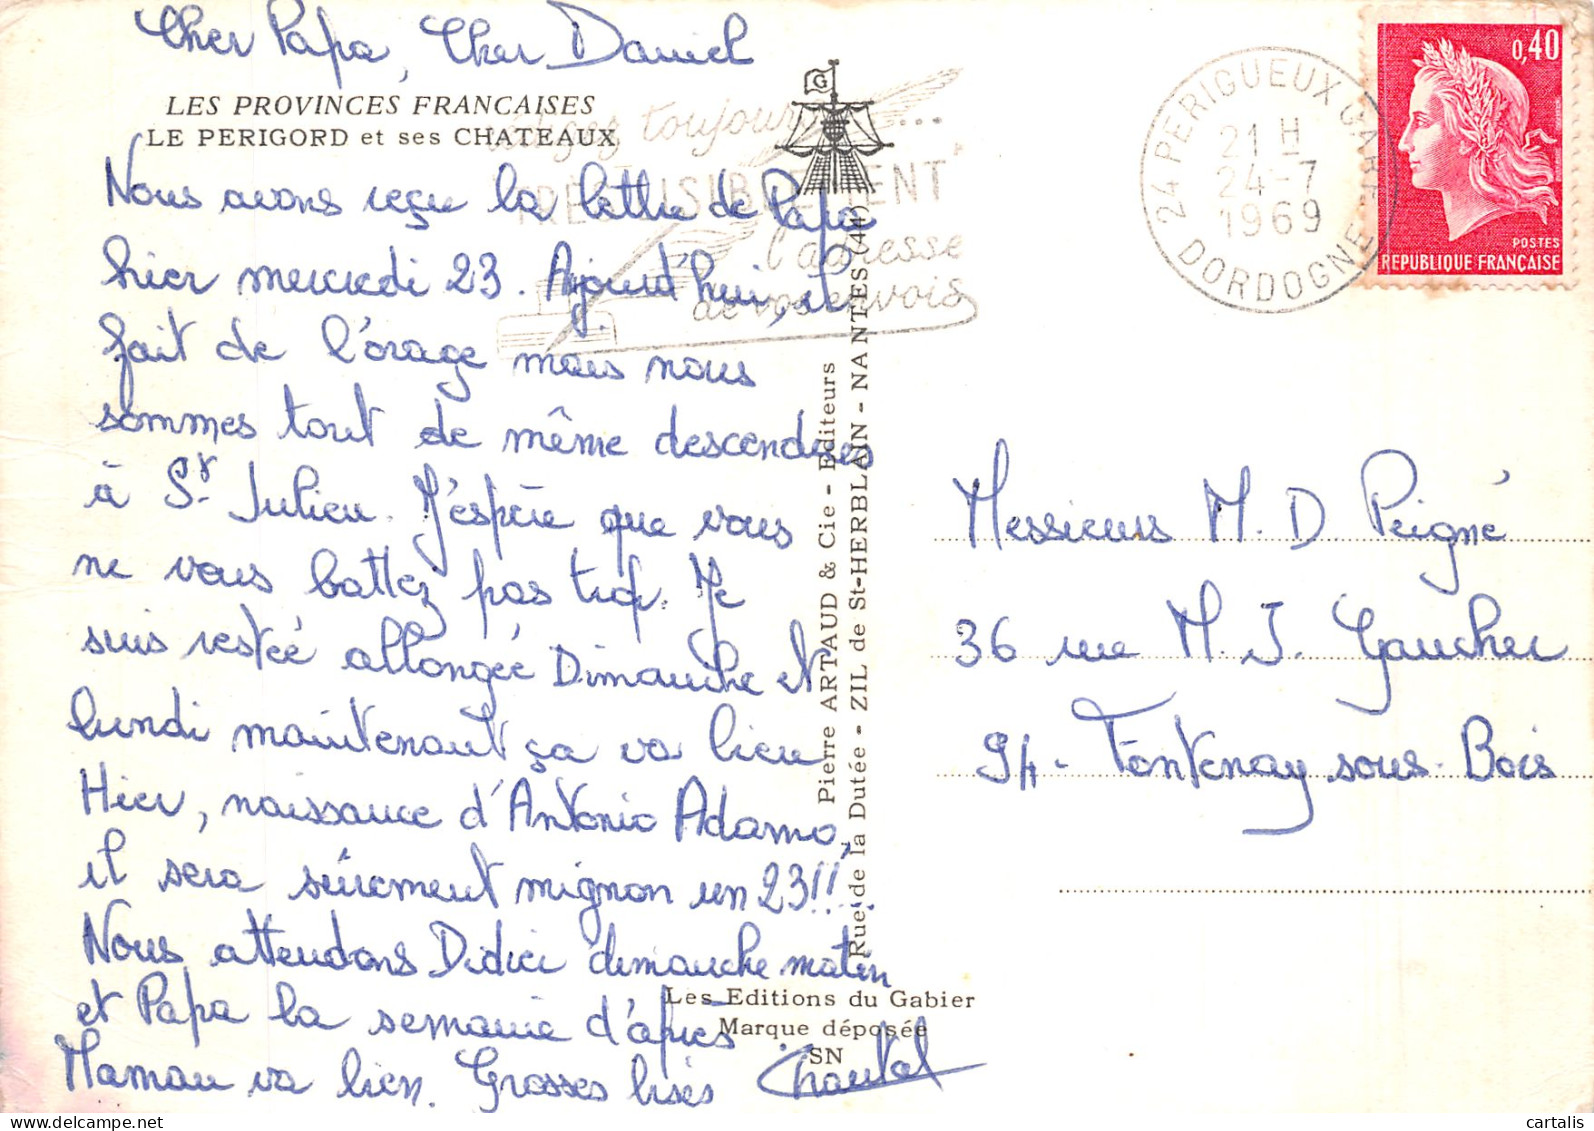 Cher Papa, Cher Daniel
LES PROVINCES FRANCAISES
LE PERIGORD et ses CHATEAUX
Nous avons reçu la lettre de Papa
hier mercredi 23. Ajourd'hui, il
fait de l'orage mais nous
sommes tout de même descendues
à St Julien. J'espère que vous
ne vous battez pas trop. Je
suis restée allongée Dimanche et
lundi maintenant ça va bien
Hier, naissance d'Antonio Adamo,
il sera sûrement mignon un 23!!
Nous attendons Didier dimanche matin
et Papa la semaine d'après
Maman va bien. Grosses bises Chantal
G
toujours ...
TRES LISIBLEMENT
l'adresse
de vos envois
Pierre ARTAUD & Cie - Editeurs
Rue de la Dutée - ZIL de St-HERBLAIN - NANTES (44)
Les Editions du Gabier
Marque déposée
SN
24 PERIGUEUX GARE
21 H
24-7
1969
DORDOGNE
0,40
POSTES
REPUBLIQUE FRANÇAISE
Messieurs M. D Peigné
36 rue M. J. Gaucher
94 - Fontenay sous-Bois
cartalis
www.delcampe.net